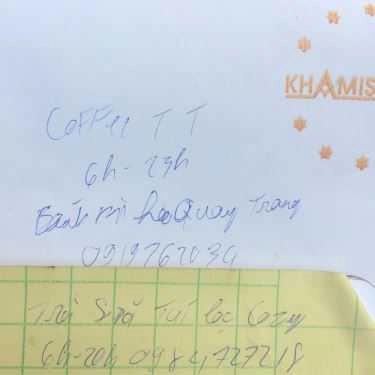 KHAMIS
Coffee TT
6h - 23h
Bánh mì heo Quay Trang
0919767034
Trà Sữa
6h-20h 0984727218